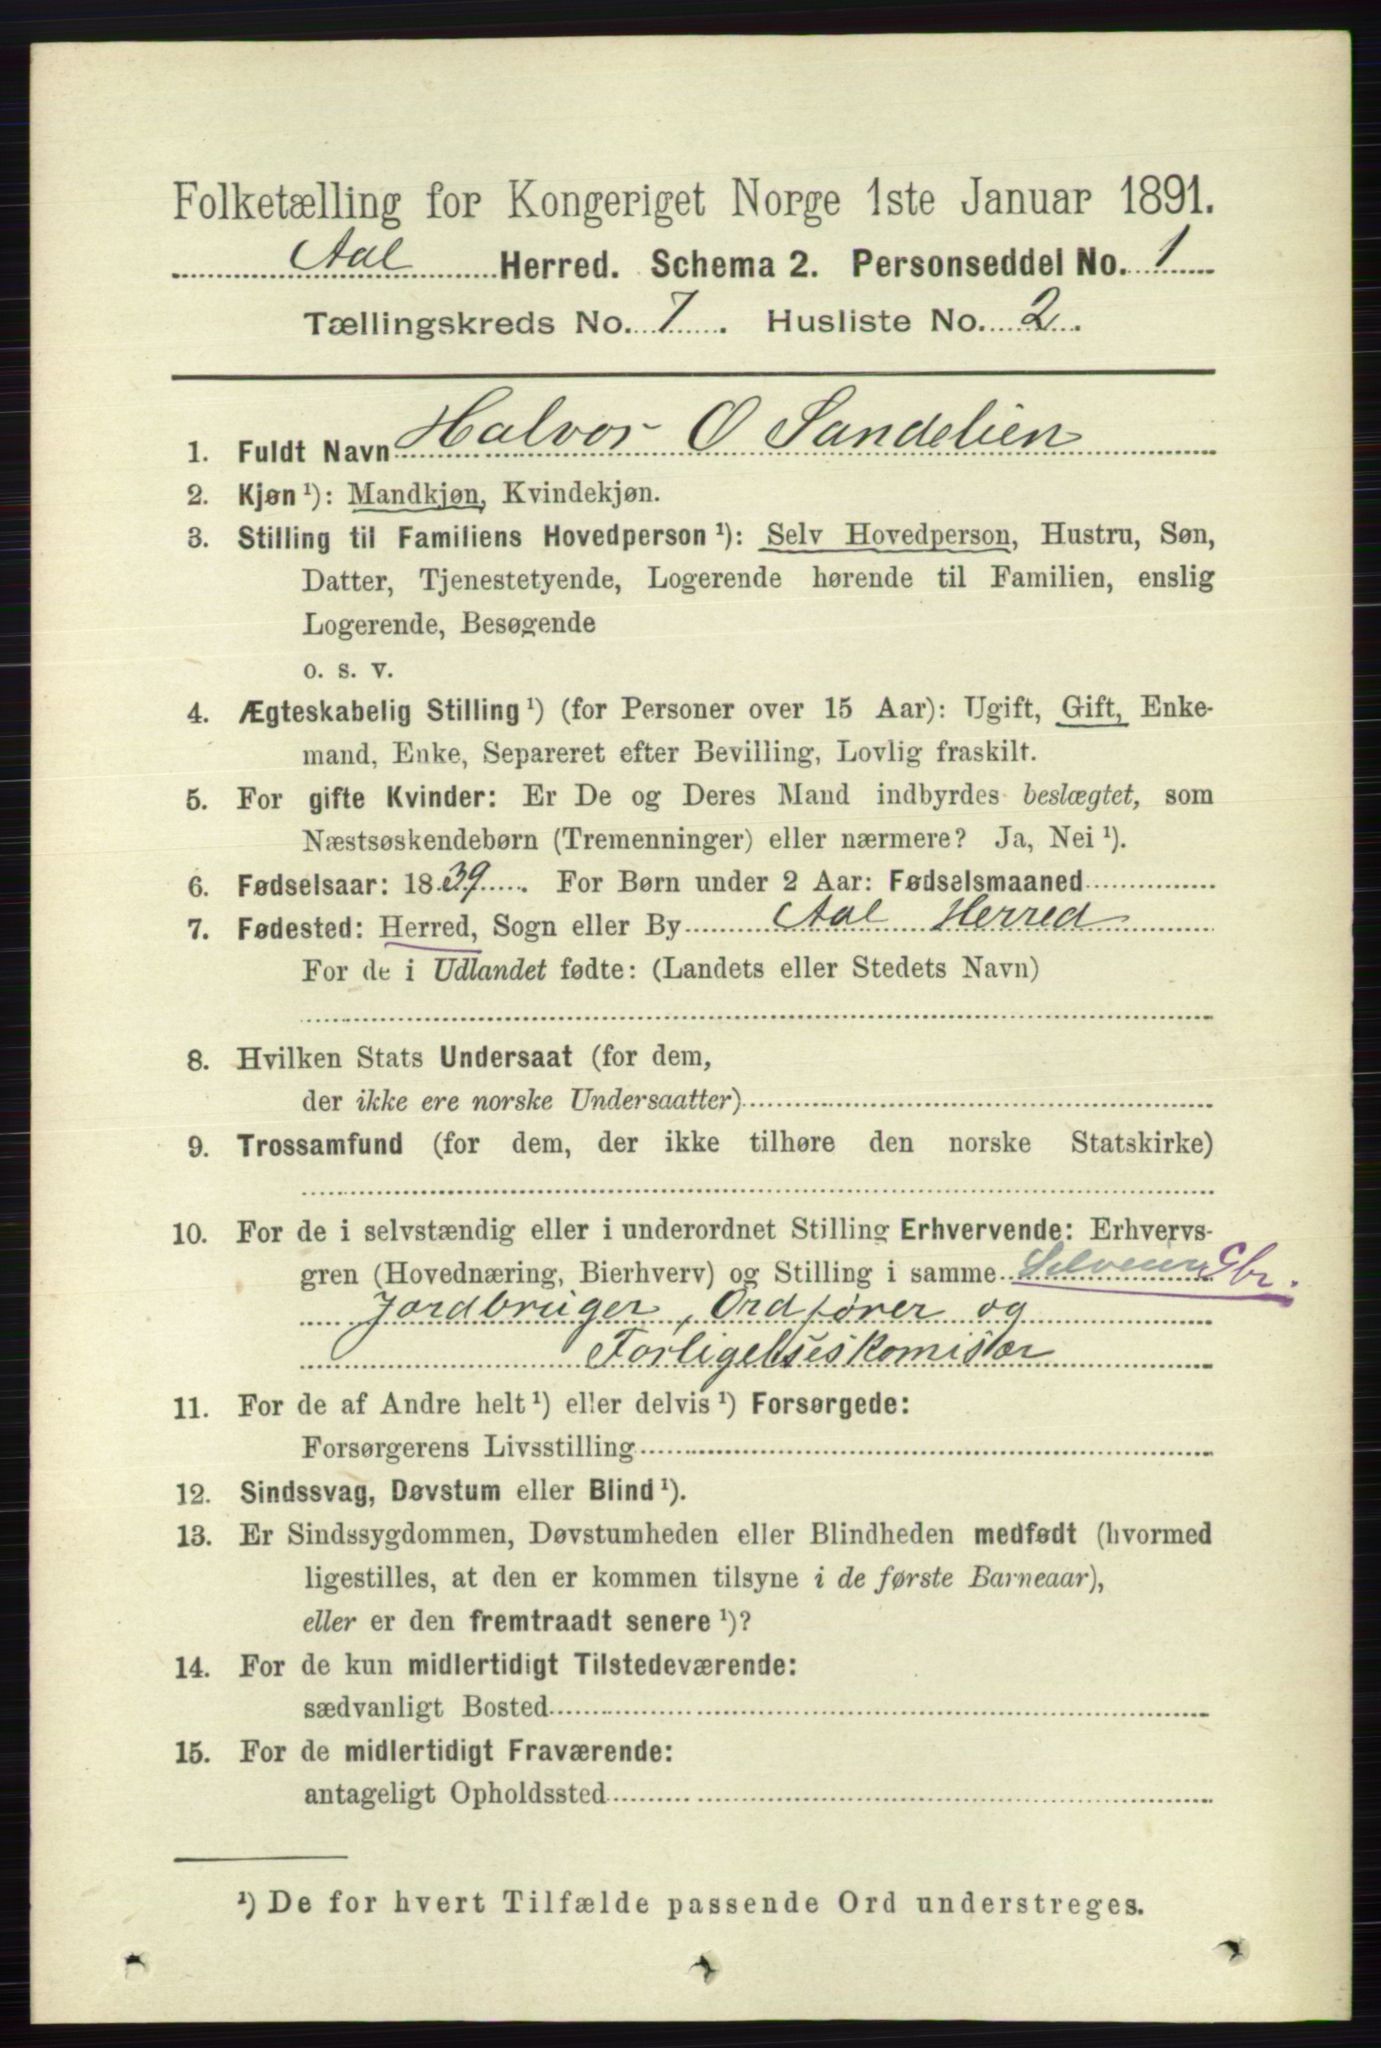 Folketælling for Kongeriget Norge 1ste Januar 1891.
Aal Herred. Schema 2. Personseddel No. 1
Tællingskreds No. 7. Husliste No. 2.
1. Fuldt Navn Halvor O Sandelien
2. Kjøn ¹): Mandkjøn, Kvindekjøn.
3. Stilling til Familiens Hovedperson ¹): Selv Hovedperson, Hustru, Søn,
Datter, Tjenestetyende, Logerende hørende til Familien, enslig
Logerende, Besøgende
o. s. v.
4. Ægteskabelig Stilling ¹) (for Personer over 15 Aar): Ugift, Gift, Enke-
mand, Enke, Separeret efter Bevilling, Lovlig fraskilt.
5. For gifte Kvinder: Er De og Deres Mand indbyrdes beslægtet, som
Næstsøskendebørn (Tremenninger) eller nærmere? Ja, Nei ¹).
6. Fødselsaar: 1839. For Børn under 2 Aar: Fødselsmaaned
7. Fødested: Herred, Sogn eller By Aal Herred
For de i Udlandet fødte: (Landets eller Stedets Navn)
8. Hvilken Stats Undersaat (for dem,
der ikke ere norske Undersaatter)
9. Trossamfund (for dem, der ikke tilhøre den norske Statskirke)
10. For de i selvstændig eller i underordnet Stilling Erhvervende: Erhvervs-
gren (Hovednæring, Bierhverv) og Stilling i samme Gbr.
Jordbruger, Ordfører og
Forligelseskomisær
11. For de af Andre helt ¹) eller delvis ¹) Forsørgede:
Forsørgerens Livsstilling
12. Sindssvag, Døvstum eller Blind ¹).
13. Er Sindssygdommen, Døvstumheden eller Blindheden medfødt (hvormed
ligestilles, at den er kommen tilsyne i de første Barneaar),
eller er den fremtraadt senere ¹)?
14. For de kun midlertidigt Tilstedeværende:
sædvanligt Bosted
15. For de midlertidigt Fraværende:
antageligt Opholdssted
¹) De for hvert Tilfælde passende Ord understreges.